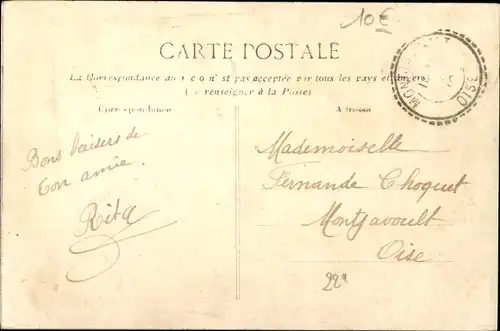 10€
CARTE POSTALE
La Correspondance au recon' st pas acceptée par tous les pays etrangers
(Se renseigner à la Poste)
Correspondance
Adresse
Bons baisers de
ton amie.
Rita
Mademoiselle
Fernande Choquet
Montjavoult
Oise
OISE